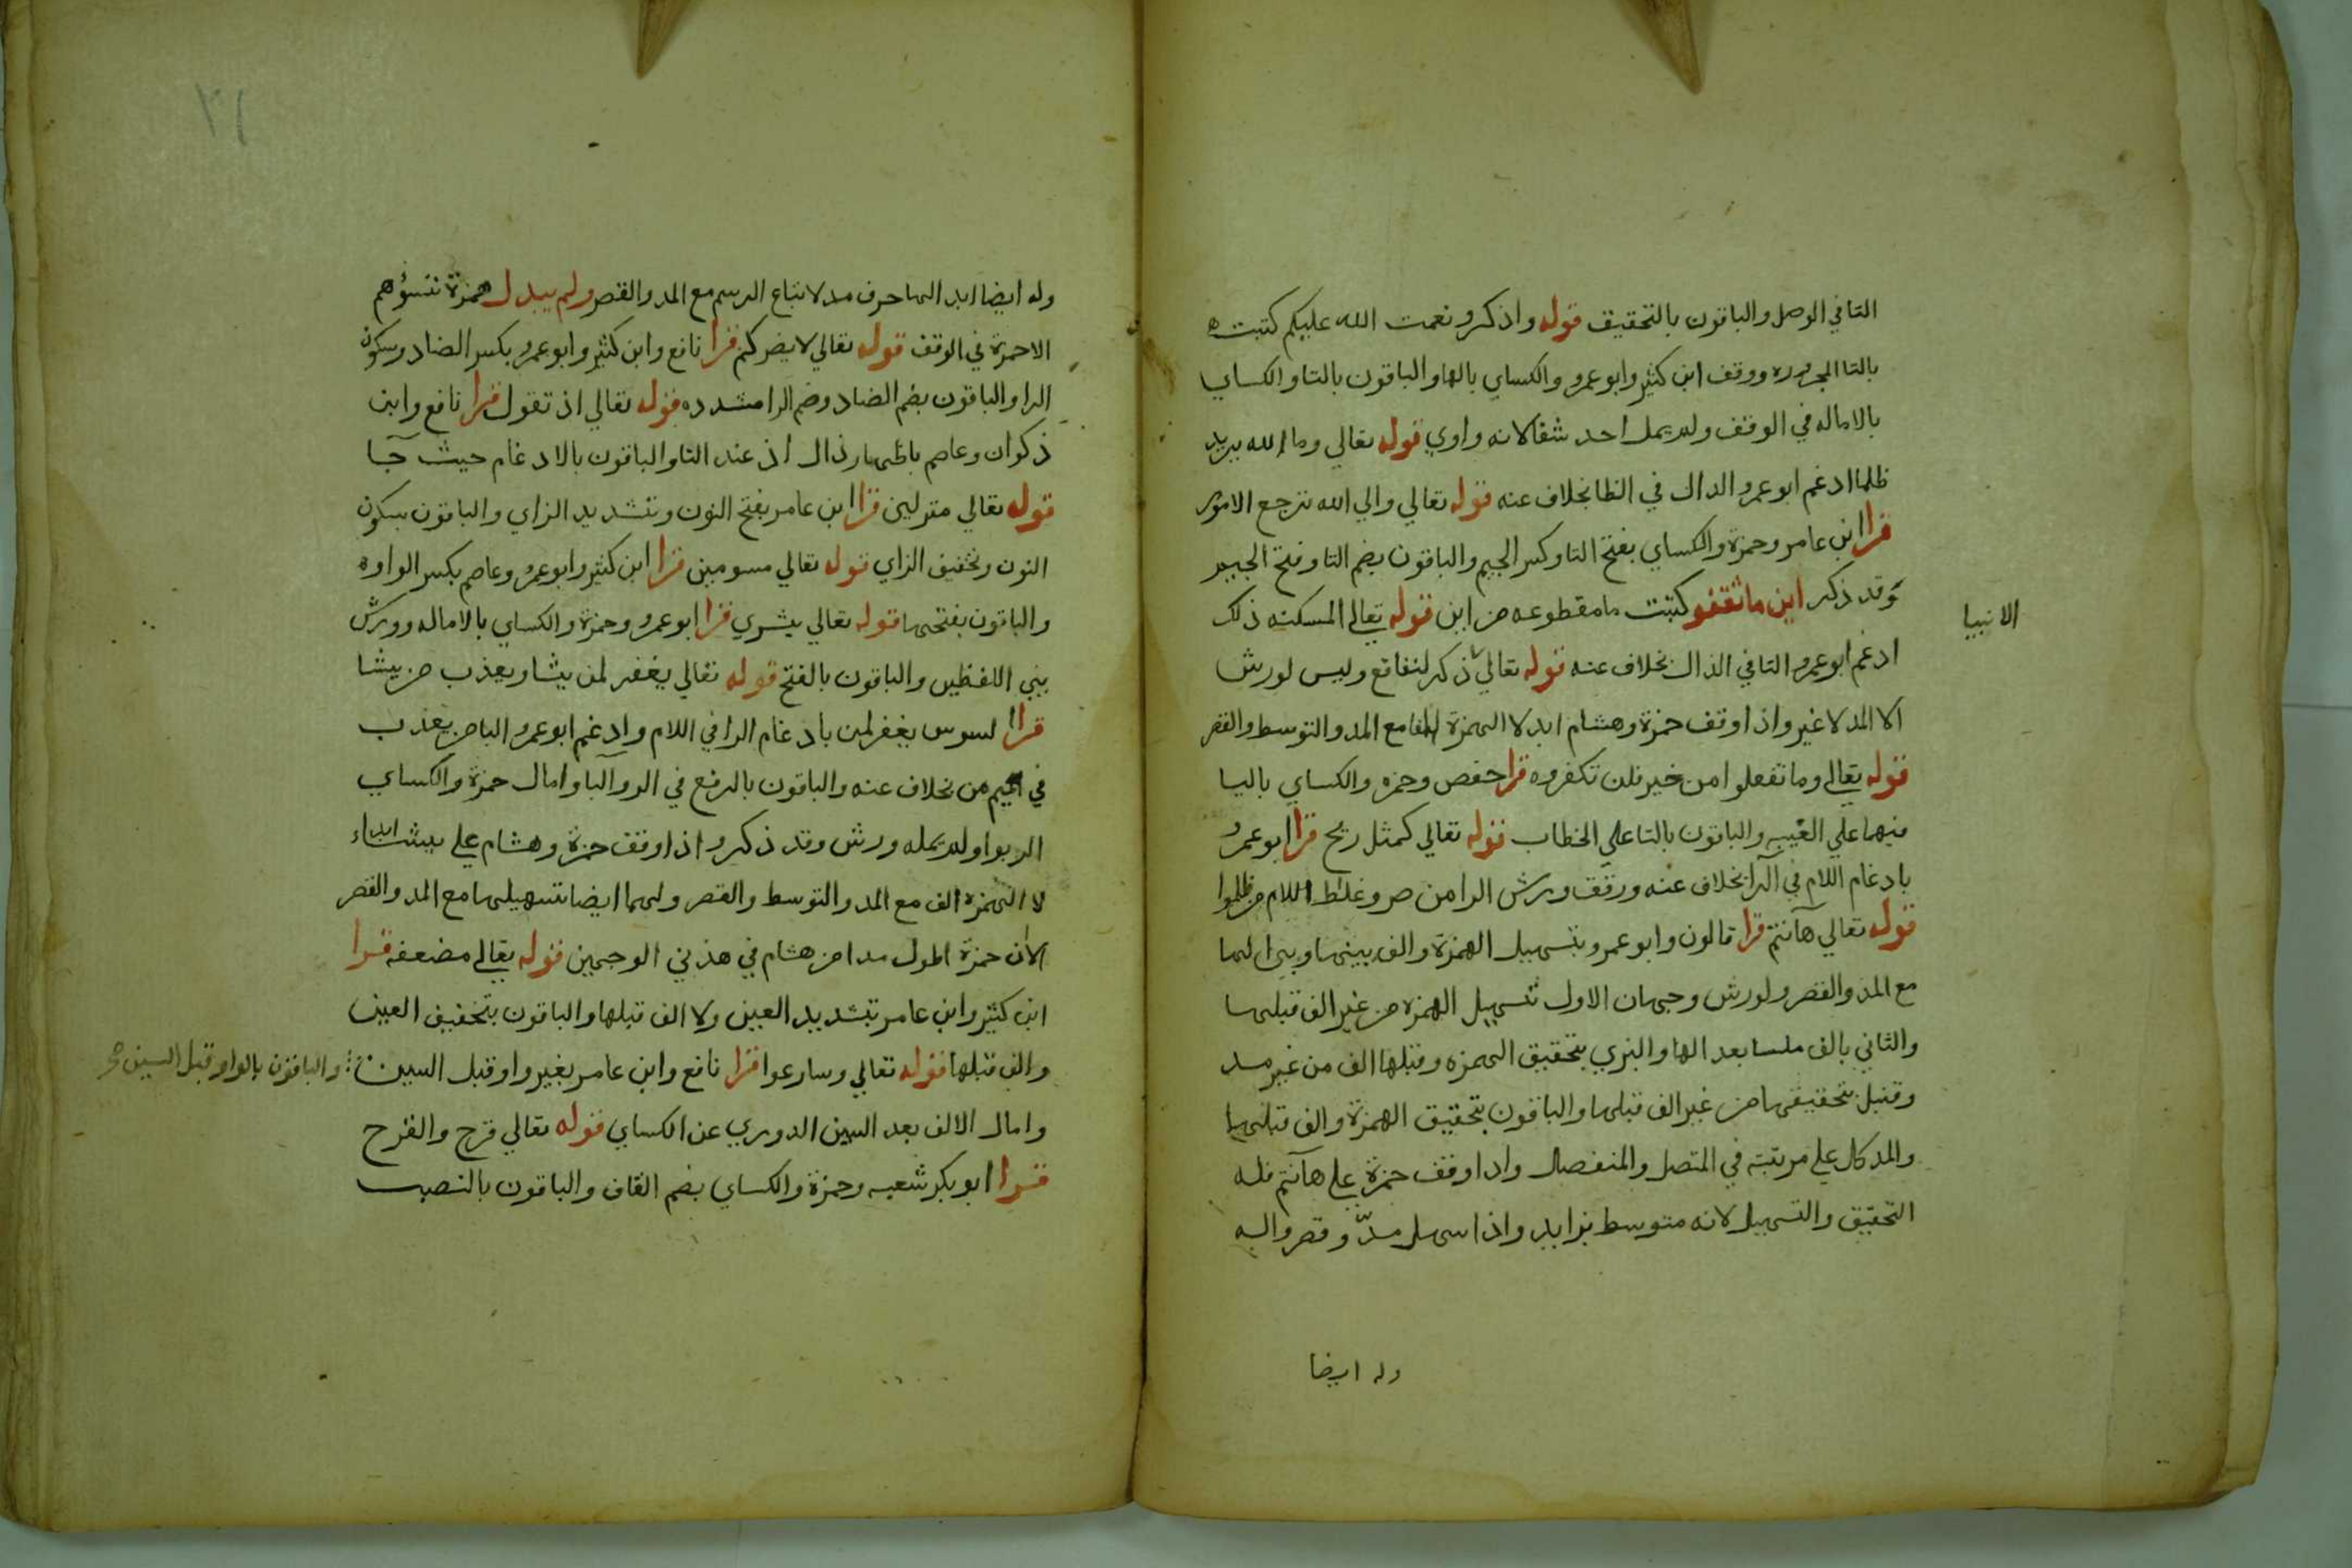 التا في الوصل والباقون بالتحقيق قوله واذكرو نعمت الله عليكم كتبت
بالتا المجروره ووقف ابن كثير وابو عمرو والكساي بالها والباقون بالتا والكساي
بالاماله في الوقف ولم يمل احد شفا لانه واوي قوله تعالي وما الله يريد
ظلما ادغم ابو عمرو الدال في الظا بخلاف عنه قوله تعالي والي الله ترجع الامور
قرا ابن عامر وحمزة والكساي بفتح التا وكسر الجيم والباقون بضم التا وفتح الجيم
وقد ذكر اين ما ثقفو كتبت ما مقطوعه من اين قوله تعالي المسكنه ذلك
الانبيا
ادغم ابو عمرو التا في الذال بخلاف عنه قوله تعالي ذكر لنفا نع وليس لورش
الا المد لا غير واذا وقف حمزة وهشام ابدلا الهمزة الفا مع المد والتوسط والقصر
قوله تعالي وما تفعلوا من خير فلن تكفروه قرا حفص وحمزه والكساي باليا
فيهما علي الغيبه والباقون بالتا علي الخطاب قوله تعالي كمثل ريح قرا ابو عمرو
بادغام اللام في الرا بخلاف عنه ورقق ورش الرا من صر وغلظ اللام من ظلموا
قوله تعالي هآنتم قرا قالون وابو عمرو بتسهيل الهمزة والف بينها وبين الها
مع المد والقصر ولورش وجهان الاول تسهيل الهمزه من غير الف قبلها
والثاني بالف ملسا بعد الها والبزي بتحقيق الهمزه وقبلها الف من غير مد
وقنبل بتحقيقها من غير الف قبلها والباقون بتحقيق الهمزة والف قبلها
والمد كال علي مرتبته في المتصل والمنفصل واذا وقف حمزة علي هآنتم فله
التحقيق والتسهيل لانه متوسط بزايد واذا سهل مدّ وقصر واله
وله ايضا
٢١
وله ايضا ابدالها حرف مد لاتباع الرسم مع المد والقصر ولم يبدل همزة تسؤهم
الا حمزة في الوقف قوله تعالي لا يضركم قرا نافع وابن كثير وابو عمرو بكسر الضاد وسكون
الرا والباقون بضم الضاد وضم الرا مشدده قوله تعالي اذ تقول قرا نافع وابن
ذكوان وعاصم باظهار ذال اذ عند التا والباقون بالادغام حيث جآ
قوله تعالي منزلين قرا ابن عامر بفتح النون وتشديد الزاي والباقون بسكون
النون وتخفيف الزاي قوله تعالي مسومين قرا ابن كثير وابو عمرو وعاصم بكسر الواوه
والباقون بفتحها قوله تعالي بشري قرا ابو عمرو وحمزة والكساي بالاماله وورش
بين اللفظين والباقون بالفتح قوله تعالي يغفر لمن يشا ويعذب من يشا
قرا السوس يغفر لمن بادغام الرا في اللام وادغم ابو عمرو البا من يعذب
في ميم من بخلاف عنه والباقون بالرفع في الروآلبا وامال حمزة والكساي
الربوا ولم يمله ورش وقد ذكر واذا وقف حمزة وهشام علي يشاء ابد
لا الهمزه الف مع المد والتوسط والقصر ولهما ايضا تسهيلها مع المد والقصر
الا ان حمزة اطول مدا من هشام في هذني الوجهين قوله تعالي مضعفه قرا
ابن كثير وابن عامر بتشديد العين ولا الف قبلها والباقون بتخفيف العين
والف قبلها قوله تعالي وسارعوا قرا نافع وابن عامر بغير واو قبل السين
والباقون بالواو قبل السين صح
وامال الالف بعد السين الدوري عن الكساي قوله تعالي قرح والقرح
قرا ابو بكر شعبه وحمزة والكساي بضم القاف والباقون بالنصب